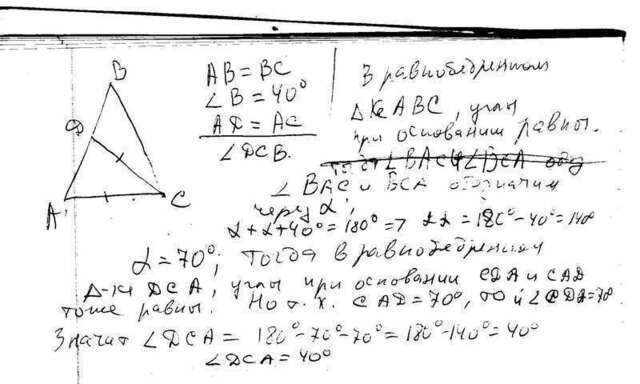 B
D
A
C
AB = BC
∠B = 40°
AD = AC
∠DCB.
В равнобедренном
Δ-ке ABC, углы
при основании равны.
∠BAC и BCA обозначим
через α;
α + α + 40° = 180° => 2α = 180° - 40° = 140
α = 70°; Тогда в равнобедренном
Δ-ке DCA, углы при основании CDA и CAD
тоже равны. Но т. к. CAD = 70°, то и ∠CDA = 70
Значит ∠DCA = 180° - 70° - 70° = 180° - 140° = 40°
∠DCA = 40°